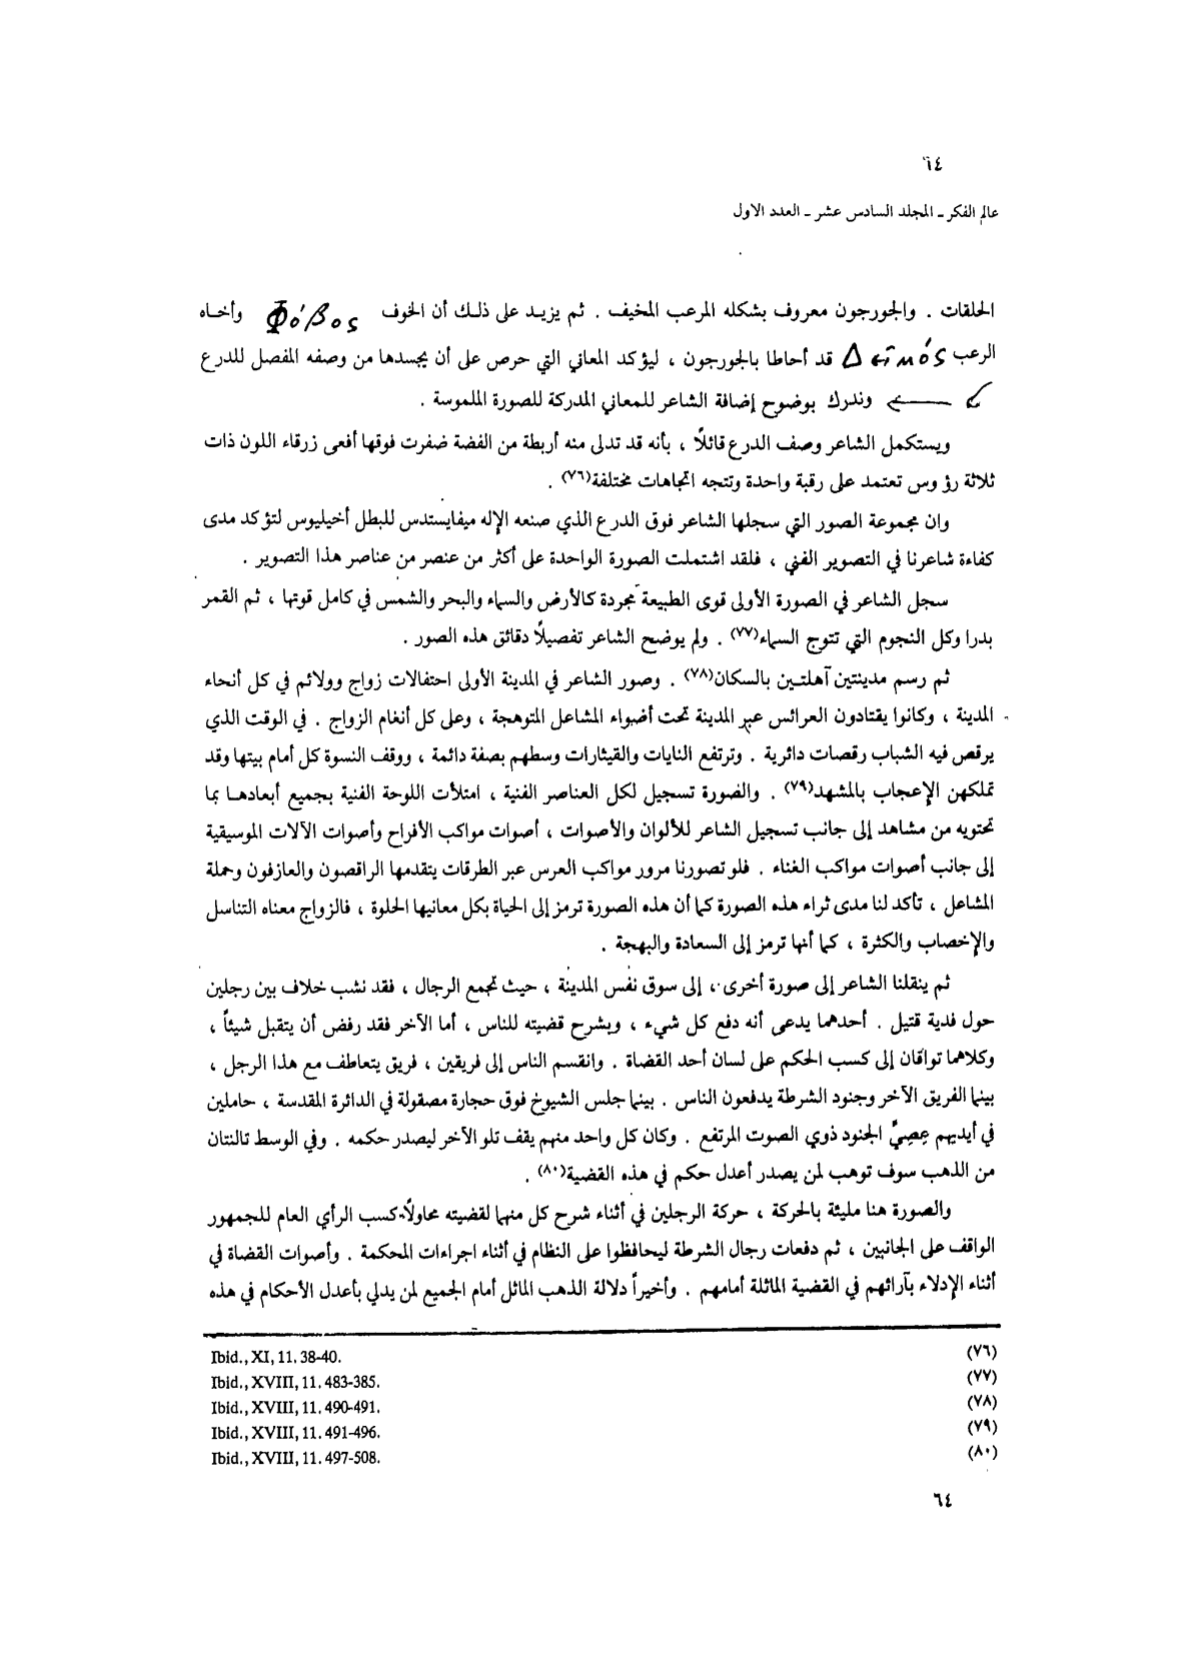 ٦٤
عالم الفكر ـ المجلد السادس عشر ـ العدد الاول
الحلقات . والجورجون معروف بشكله المرعب المخيف . ثم يزيد على ذلك أن الخوف Φόβος وأخاه
الرعب Δεῖμός قد أحاطا بالجورجون ، ليؤكد المعاني التي حرص على أن يجسدها من وصفه المفصل للدرع
وندرك بوضوح إضافة الشاعر للمعاني المدركة للصورة الملموسة .
ويستكمل الشاعر وصف الدرع قائلاً ، بأنه قد تدلى منه أربطة من الفضة ضفرت فوقها أفعى زرقاء اللون ذات
ثلاثة رؤوس تعتمد على رقبة واحدة وتتجه اتجاهات مختلفة(٧٦) .
وان مجموعة الصور التي سجلها الشاعر فوق الدرع الذي صنعه الإله ميفايستدس للبطل أخيليوس لتؤكد مدى
كفاءة شاعرنا في التصوير الفني ، فلقد اشتملت الصورة الواحدة على أكثر من عنصر من عناصر هذا التصوير .
سجل الشاعر في الصورة الأولى قوى الطبيعة مجردة كالأرض والسماء والبحر والشمس في كامل قوتها ، ثم القمر
بدرا وكل النجوم التي تتوج السماء(٧٧) . ولم يوضح الشاعر تفصيلاً دقائق هذه الصور .
ثم رسم مدينتين آهلتين بالسكان(٧٨) . وصور الشاعر في المدينة الأولى احتفالات زواج وولائم في كل أنحاء
المدينة ، وكانوا يقتادون العرائس عبر المدينة تحت أضواء المشاعل المتوهجة ، وعلى كل أنغام الزواج . في الوقت الذي
يرقص فيه الشباب رقصات دائرية . وترتفع النايات والقيثارات وسطهم بصفة دائمة ، ووقف النسوة كل أمام بيتها وقد
تملكهن الإعجاب بالمشهد(٧٩) . والصورة تسجيل لكل العناصر الفنية ، امتلأت اللوحة الفنية بجميع أبعادها بما
تحتويه من مشاهد إلى جانب تسجيل الشاعر للألوان والأصوات ، أصوات مواكب الأفراح وأصوات الآلات الموسيقية
إلى جانب أصوات مواكب الغناء . فلو تصورنا مرور مواكب العرس عبر الطرقات يتقدمها الراقصون والعازفون وحملة
المشاعل ، تأكد لنا مدى ثراء هذه الصورة كما أن هذه الصورة ترمز إلى الحياة بكل معانيها الحلوة ، فالزواج معناه التناسل
والإخصاب والكثرة ، كما أنها ترمز إلى السعادة والبهجة .
ثم ينقلنا الشاعر إلى صورة أخرى ، إلى سوق نفس المدينة ، حيث تجمع الرجال ، فقد نشب خلاف بين رجلين
حول فدية قتيل . أحدهما يدعى أنه دفع كل شيء ، ويشرح قضيته للناس ، أما الآخر فقد رفض أن يتقبل شيئاً ،
وكلاهما تواقان إلى كسب الحكم على لسان أحد القضاة . وانقسم الناس إلى فريقين ، فريق يتعاطف مع هذا الرجل ،
بينما الفريق الآخر وجنود الشرطة يدفعون الناس . بينما جلس الشيوخ فوق حجارة مصقولة في الدائرة المقدسة ، حاملين
في أيديهم عِصِيَّ الجنود ذوي الصوت المرتفع . وكان كل واحد منهم يقف تلو الآخر ليصدر حكمه . وفي الوسط تالنتان
من الذهب سوف توهب لمن يصدر أعدل حكم في هذه القضية(٨٠) .
والصورة هنا مليئة بالحركة ، حركة الرجلين في أثناء شرح كل منهما لقضيته محاولاً كسب الرأي العام للجمهور
الواقف على الجانبين ، ثم دفعات رجال الشرطة ليحافظوا على النظام في أثناء اجراءات المحكمة . وأصوات القضاة في
أثناء الإدلاء بآرائهم في القضية الماثلة أمامهم . وأخيراً دلالة الذهب الماثل أمام الجميع لمن يدلي بأعدل الأحكام في هذه
(٧٦) Ibid., XI, 11. 38-40.
(٧٧) Ibid., XVIII, 11. 483-385.
(٧٨) Ibid., XVIII, 11. 490-491.
(٧٩) Ibid., XVIII, 11. 491-496.
(٨٠) Ibid., XVIII, 11. 497-508.
٦٤